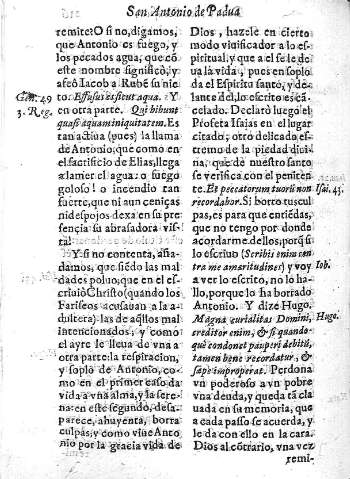 San Antonio de Padua
remite? O si no, digamos,
que Antonio es fuego, y
los pecados agua, que cõ
este nombre significò, y
afeò Iacob a Rubẽ su nie
to. Effusus es sicut aqua. Y
en otra parte. Qui bibunt
quasi aquam iniquitatem. Es
tan actiua (pues) la llama
de Antonio, que como en
el sacrificio de Elias, llega
a lamer el agua: o fuego
goloso! o incendio tan
fuerte, que ni aun ceniças
ni despojos dexa en su pre
sencia su abrasadora vis-
ta!
Y si no contenta, aña-
damos, que siẽdo las mal
dades poluo, que en el es-
criuiò Christo (quando los
Fariseos acusauan a la a-
dultera) las de aq̃llos mal
intencionados; y como
el ayre le lleua de vna a
otra parte: la respiracion,
y soplo de Antonio, co-
mo en el primer caso da
vida a vna alma, y la sere-
na: en este segundo, desa-
parece, ahuyenta, borra
culpas; y como viue Anto
nio por la gracia vida de
Gen. 49
3. Reg.
Dios, hazele en cierto
modo viuificador a lo es-
piritual, y que a el se le de
ua la vida, pues en soplo
da el Espiritu santo, y de-
lante del, lo escrito es cà-
celado. Declarò luego el
Profeta Isaias en el lugar
citado, otro delicado es-
tremo de la piedad diui-
na, que de nuestro santo
se verifica con el peniten-
te. Et peccatorum tuorũ non
recordabor. Si borro tus cul
pas, es para que entiẽdas,
que no tengo por donde
acordarme dellos, porq̃ si
lo escriuo (Scribis enim con
tra me amaritudines) y voy
a ver lo escrito, no lo ha-
llo, porque lo ha borrado
Antonio. Y dize Hugo.
Magna curialitas Domini,
creditor enim, & si quando-
que condonet pauperi debitũ,
tamen bene recordatur, &
sæpe improperat. Perdona
vn poderoso a vn pobre
vna deuda, y queda tã cla
uada en su memoria, que
a cada passo se acuerda, y
le da con ello en la cara.
Dios al cõtrario, vna vez
remi-
Isai. 43.
Iob.
Hugo.